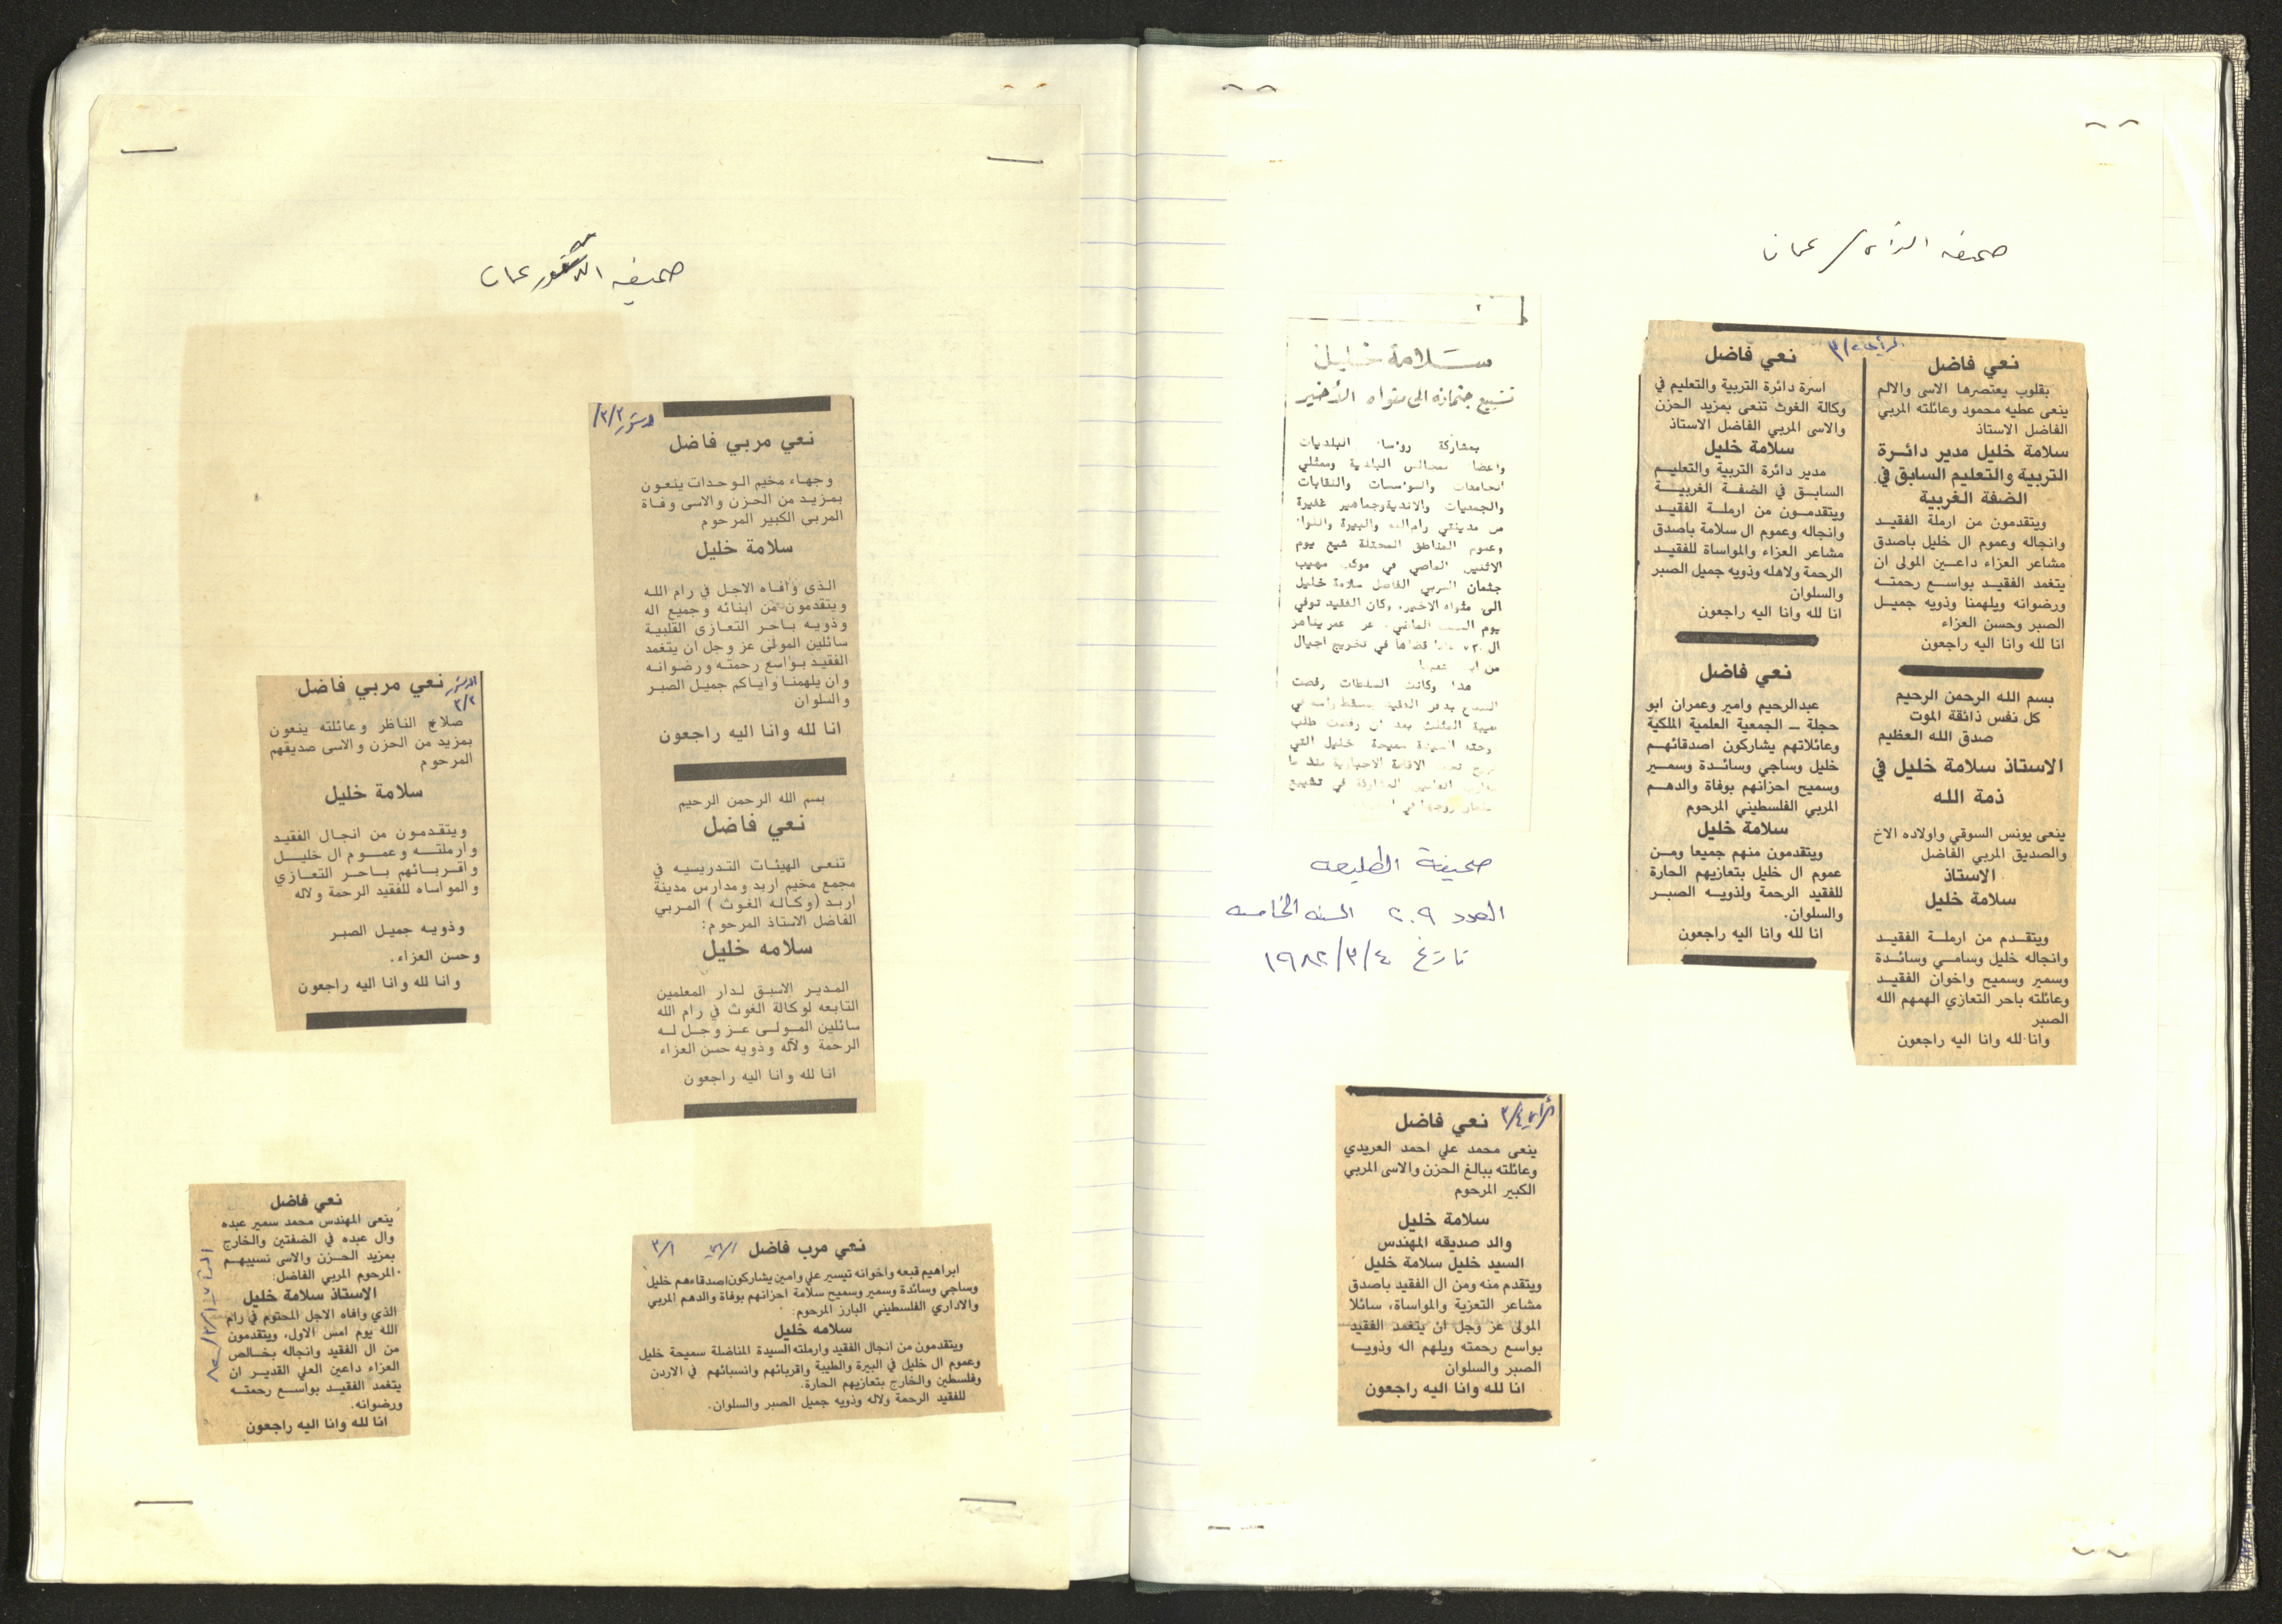 صحيفه الرأي / عمان
نعي فاضل
بقلوب يعتصرها الاسى والالم
ينعى عطيه محمود وعائلته المربي
الفاضل الاستاذ
سلامة خليل مدير دائرة
التربية والتعليم السابق في
الضفة الغربية
ويتقدمون من ارملة الفقيد
وانجاله وعموم ال خليل باصدق
مشاعر العزاء داعين المولى ان
يتغمد الفقيد بواسع رحمته
ورضوانه ويلهمنا وذويه جميل
الصبر وحسن العزاء
انا لله وانا اليه راجعون
بسم الله الرحمن الرحيم
كل نفس ذائقة الموت
صدق الله العظيم
الاستاذ سلامة خليل في
ذمة الله
ينعى يونس السوقي واولاده الاخ
والصديق المربي الفاضل
الاستاذ
سلامة خليل
ويتقدم من ارملة الفقيد
وانجاله خليل وسامي وسائدة
وسمير وسميح واخوان الفقيد
وعائلته باحر التعازي الهمهم الله
الصبر
وانا لله وانا اليه راجعون
نعي فاضل
اسرة دائرة التربية والتعليم في
وكالة الغوث تنعى بمزيد الحزن
والاسى المربي الفاضل الاستاذ
سلامة خليل
مدير دائرة التربية والتعليم
السابق في الضفة الغربية
ويتقدمون من ارملة الفقيد
وانجاله وعموم ال سلامة باصدق
مشاعر العزاء والمواساة للفقيد
الرحمة ولاهله وذويه جميل الصبر
والسلوان
انا لله وانا اليه راجعون
نعي فاضل
عبدالرحيم وامير وعمران ابو
حجلة ــ الجمعية العلمية الملكية
وعائلاتهم يشاركون اصدقائهم
خليل وساجي وسائدة وسمير
وسميح احزانهم بوفاة والدهم
المربي الفلسطيني المرحوم
سلامة خليل
ويتقدمون منهم جميعا ومن
عموم ال خليل بتعازيهم الحارة
للفقيد الرحمة ولذويه الصبر
والسلوان.
انا لله وانا اليه راجعون
سلامة خليل
تشييع جثمانه الى مثواه الأخير
بمشاركة رؤساء البلديات
واعضاء مجالس البلدية وممثلي
الجامعات والمؤسسات والنقابات
والجمعيات والاندية وجماهير غفيرة
من مدينتي رام الله والبيرة واللواء
وعموم المناطق المحتلة شيع يوم
الاثنين الماضي في موكب مهيب
جثمان المربي الفاضل سلامة خليل
الى مثواه الاخير. وكان الفقيد توفي
يوم السبت الماضي عن عمر يناهز
ال قضاها في تخريج اجيال
من
هذا وكانت السلطات رفضت
السماح بدفن الفقيد بمسقط راسه في
طيبة المثلث بعد ان رفضت طلب
زوجته السيدة سميحة خليل التي
الاقامة الاجبارية منذ ما
المشاركة في تشييع
صحيفة الطليعه
العدد ٢٠٩ السنه الخامسه
تاريخ ١٩٨٢/٣/٤
الرأي ٣/٤
نعي فاضل
ينعى محمد علي احمد العريدي
وعائلته ببالغ الحزن والاسى المربي
الكبير المرحوم
سلامة خليل
والد صديقه المهندس
السيد خليل سلامة خليل
ويتقدم منه ومن ال الفقيد باصدق
مشاعر التعزية والمواساة، سائلا
المولى عز وجل ان يتغمد الفقيد
بواسع رحمته ويلهم اله وذويه
الصبر والسلوان
انا لله وانا اليه راجعون
صحيفه الدستور عمان
الدستور ٣/٢
نعي مربي فاضل
وجهاء مخيم الوحدات ينعون
بمزيد من الحزن والاسى وفاة
المربي الكبير المرحوم
سلامة خليل
الذي وافاه الاجل في رام الله
ويتقدمون من ابنائه وجميع اله
وذويه باحر التعازي القلبية
سائلين المولى عز وجل ان يتغمد
الفقيد بواسع رحمته ورضوانه
وان يلهمنا واياكم جميل الصبر
والسلوان
انا لله وانا اليه راجعون
بسم الله الرحمن الرحيم
نعي فاضل
تنعى الهيئات التدريسيه في
مجمع مخيم اربد ومدارس مدينة
اربد (وكاله الغوث) المربي
الفاضل الاستاذ المرحوم:
سلامه خليل
المدير الاسبق لدار المعلمين
التابعه لوكالة الغوث في رام الله
سائلين المولى عز وجل له
الرحمة ولآله وذويه حسن العزاء
انا لله وانا اليه راجعون
الدستور
٣/٢
نعي مربي فاضل
صلاح الناظر وعائلته ينعون
بمزيد من الحزن والاسى صديقهم
المرحوم
سلامة خليل
ويتقدمون من انجال الفقيد
وارملته وعموم ال خليل
واقربائهم باحر التعازي
والمواساه للفقيد الرحمة ولاله
وذويه جميل الصبر
وحسن العزاء.
وانا لله وانا اليه راجعون
نعي مرب فاضل
٣/١
ابراهيم قبعه واخوانه تيسير علي وامين يشاركون اصدقاءهم خليل
وساجي وسائدة وسمير وسميح سلامة احزانهم بوفاة والدهم المربي
والاداري الفلسطيني البارز المرحوم:
سلامه خليل
ويتقدمون من انجال الفقيد وارملته السيدة المناضلة سميحة خليل
وعموم ال خليل في البيرة والطيبة واقربائهم وانسبائهم في الاردن
وفلسطين والخارج بتعازيهم الحارة.
للفقيد الرحمة ولاله وذويه جميل الصبر والسلوان.
نعي فاضل
ينعى المهندس محمد سمير عبده
وال عبده في الضفتين والخارج
بمزيد الحزن والاسى نسيبهم
المرحوم المربي الفاضل:
الاستاذ سلامة خليل
الذي وافاه الاجل المحتوم في رام
الله يوم امس الاول، ويتقدمون
من ال الفقيد وانجاله بخالص
العزاء داعين العلي القدير ان
يتغمد الفقيد بواسع رحمته
ورضوانه.
انا لله وانا اليه راجعون